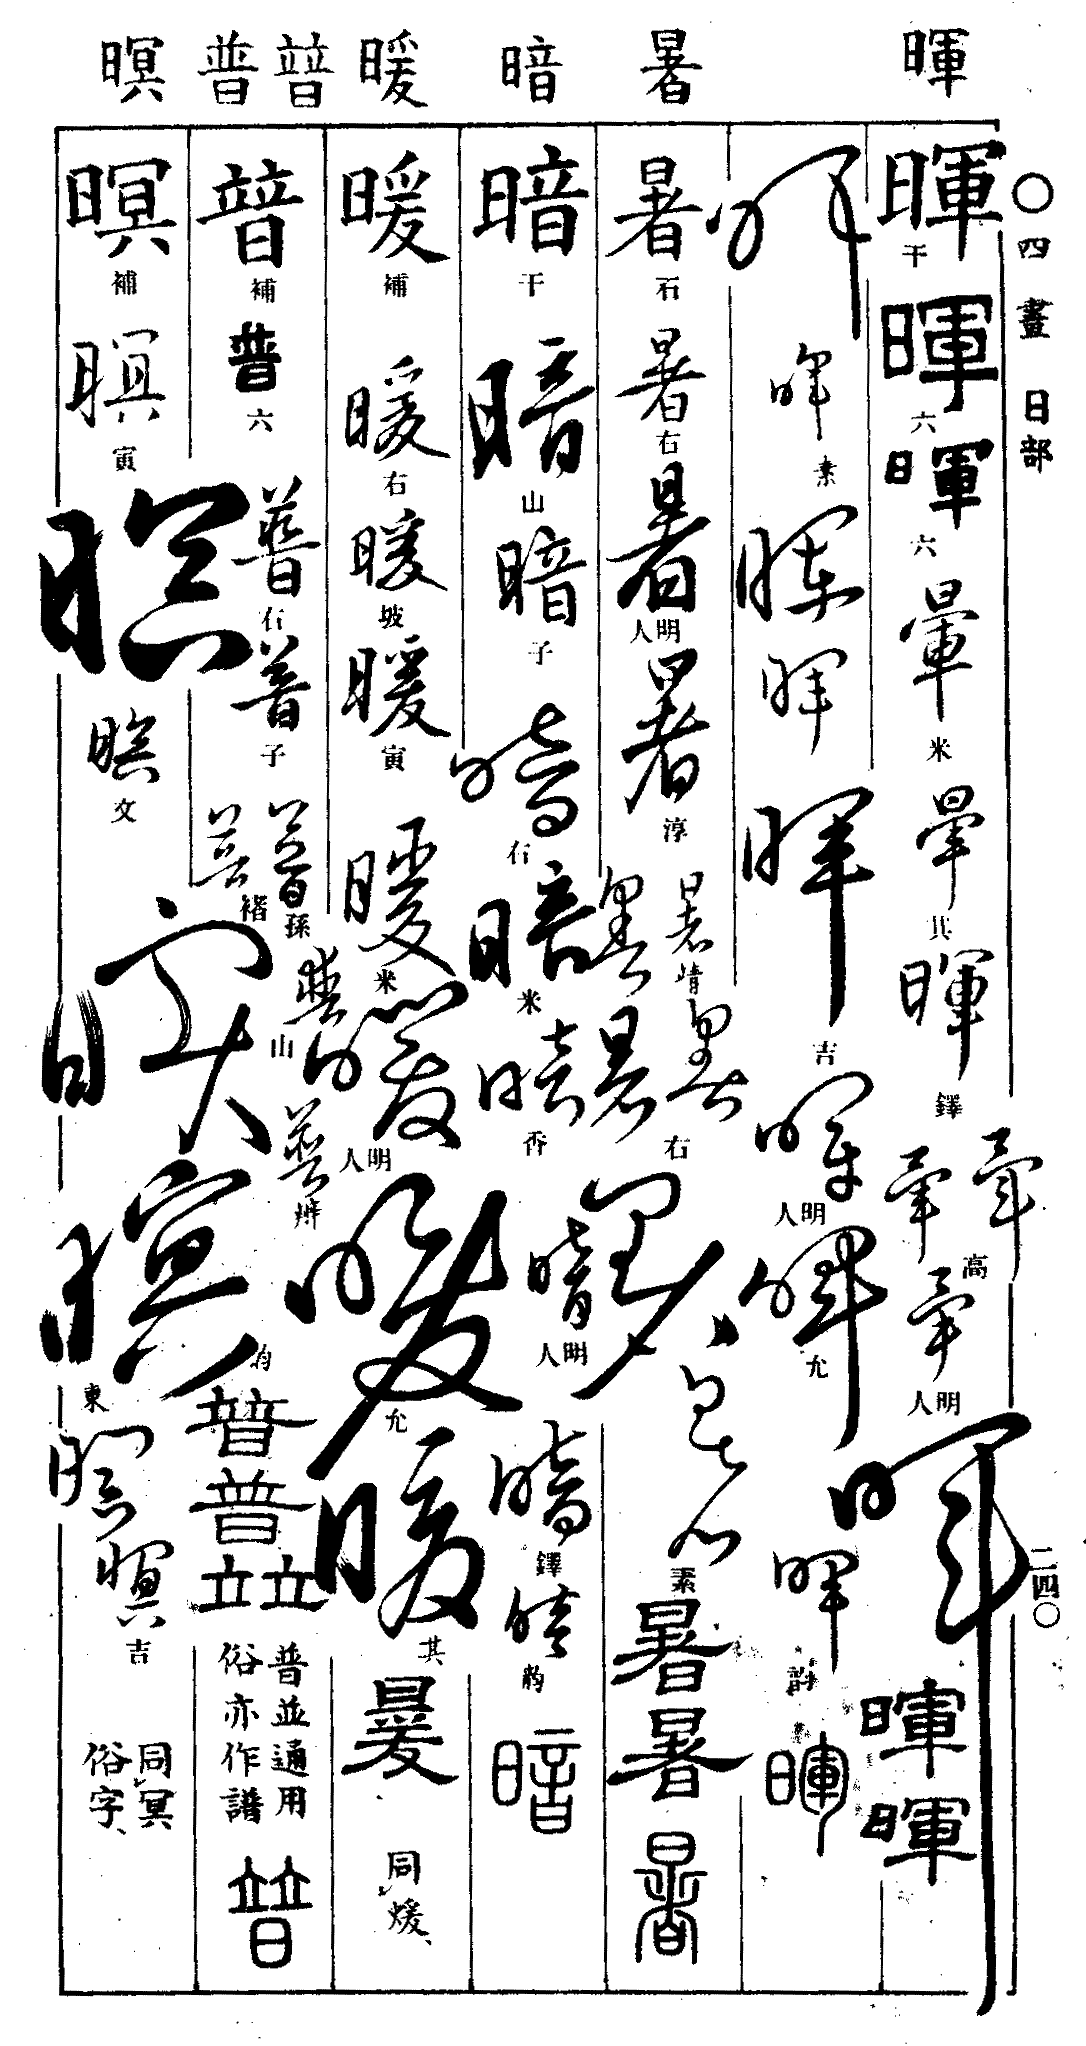 暉
暑
暗
暖
暜 普
暝
〇四畫 日部
二四〇
暉 干
暉 六
暉 六
暈 米
暈 其
暉 鐸
暈 暈 高
暈 明人
暉
暉
暉
暉
暉 素
暉
暉
暉 吉
暉 明人
暉 允
暉
暉
暑 石
暑 右
暑 明人
暑 淳
暑 靖
暑
暑 暑 右
暑
暑 素
暑
暑
暑
暗 干
暗 山
暗 子
暗 石
暗 米
暗 香
暗 明人
暗 鐸
暗 豹
暗
暖 補
暖 右
暖 坡
暖 寅
暖 米
暖 明人
暖 允
暖 其
暖
同煖、
暜 補
普 六
普 石
普 子
普 孫
普 褚
普 山
普 辨
普
普
普並通用
俗亦作譜
暜
暝 補
暝 寅
暝
暝 文
暝
暝 東
暝
暝 吉
同冥
俗字、